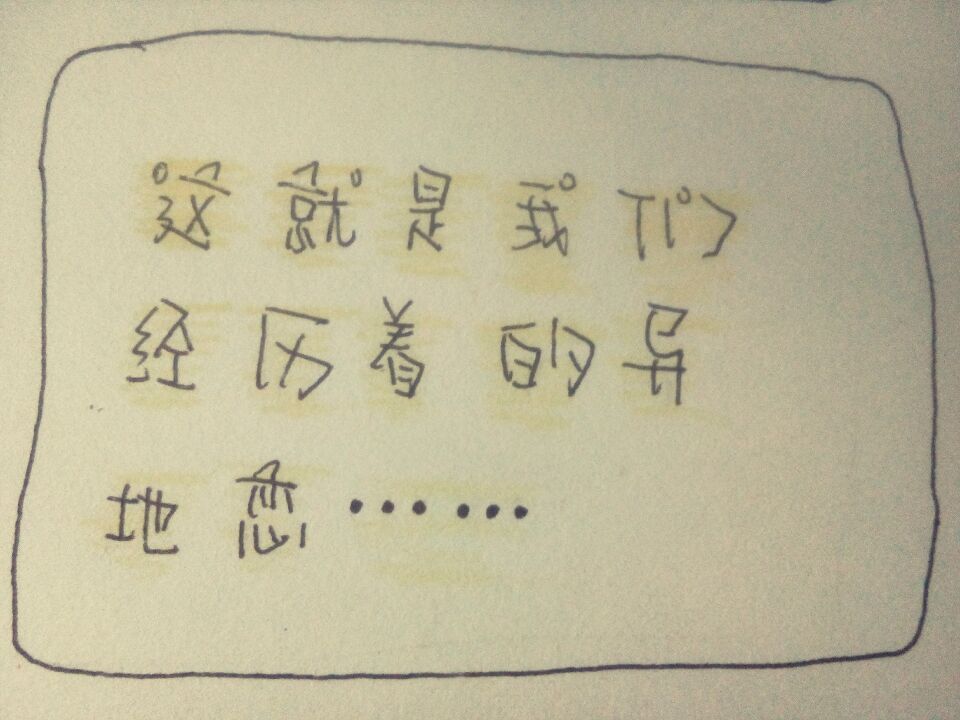 这就是我们
经历着的异
地恋……